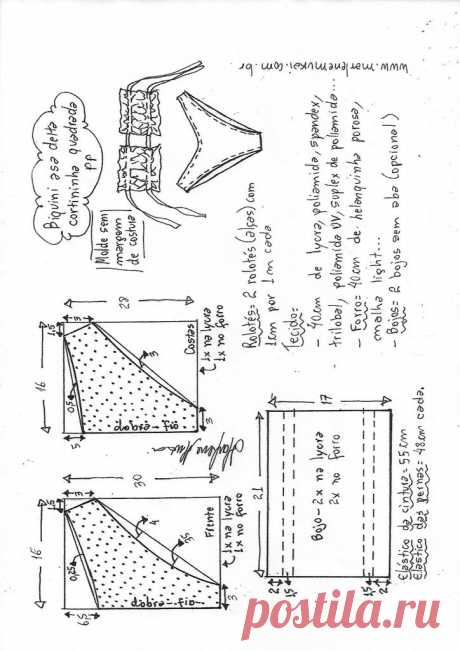 www.marlenemukai.com.br
Biquini asa delta
cortininha quadrada
PP
Molde sem
margem
de costura
Rolotês: 2 rolotês (alças) com
1cm por 1m cada
Tecido:
- 40cm de lycra, poliamida, spandex,
trilobal, poliamida UV, suplex de poliamida...
- Forro: 40cm de helanquinha porosa,
malha light...
- Bojos: 2 bojos sem aba (opcional)
28
16
1,5
3
0,5
5
3
3
dobra-fio
Costas
1x na lycra
1x no forro
30
16
3
0,25
6,5
4
3
dobra-fio
Frente
1x na lycra
1x no forro
17
21
Bojo - 2x na lycra
2x no forro
2
1,5
1,5
2
Elástico da cintura = 55cm
Elástico das pernas = 48cm cada.
postila.ru